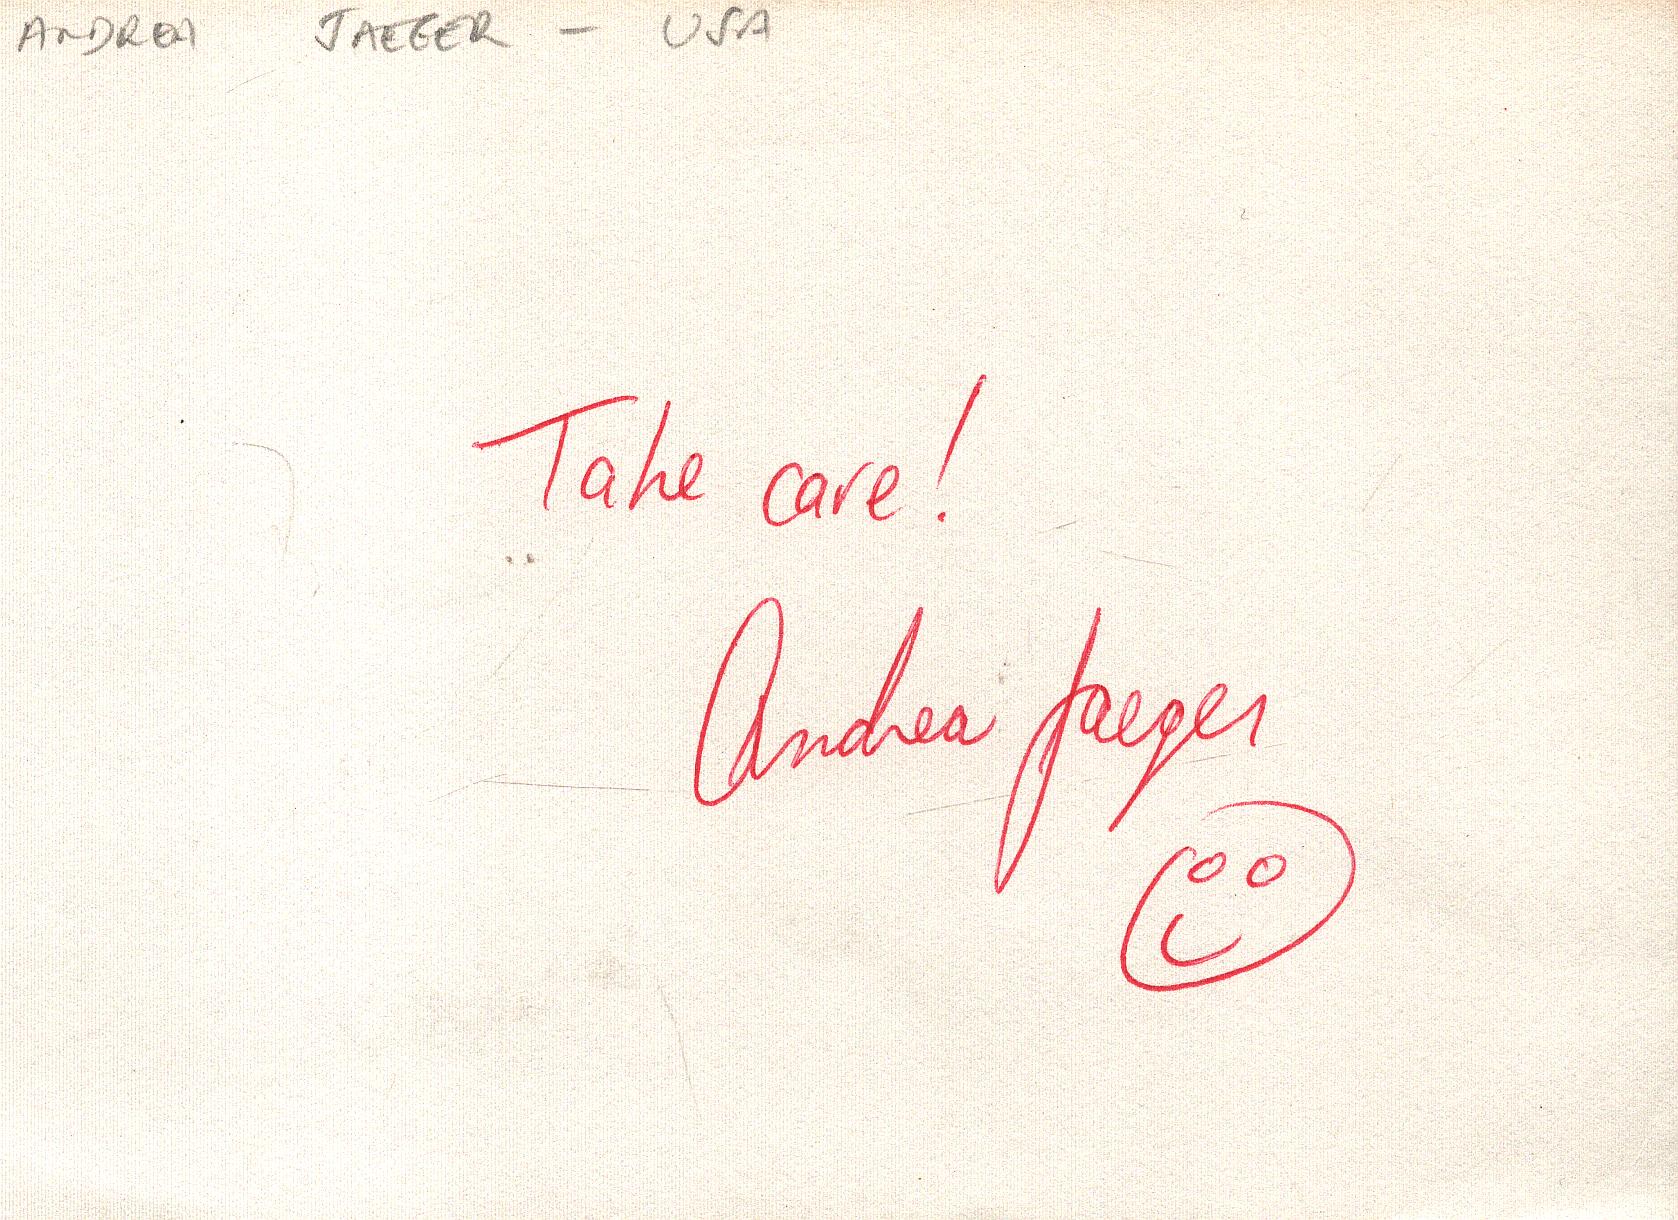 ANDREA JAEGER - USA
Take care!
Andrea Jaeger